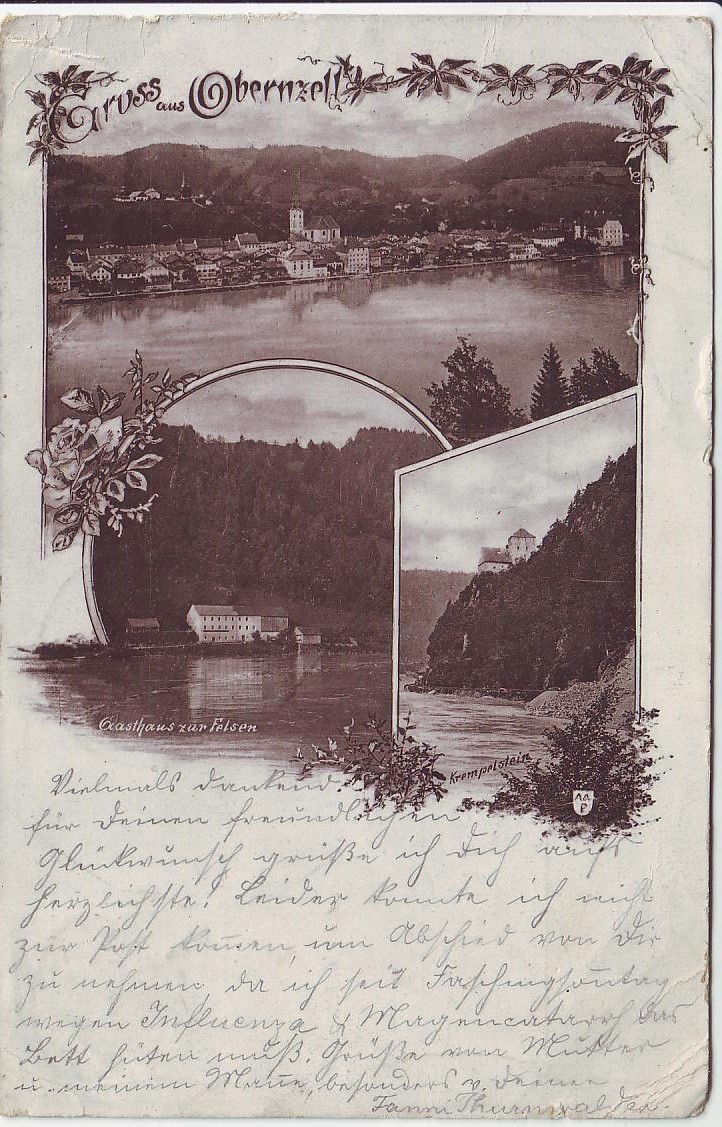 Gruss aus Obernzell
Gasthaus zur Felsen
Krempelstein
AA
P
Vielmals dankend
für Deinen freundlichen
Glückwunsch grüße ich Dich aufs
herzlichste! Leider konnte ich nicht
zur Post kom̅en, um Abschied von Dir
zu nehmen, da ich seit Faschingson̅tag
wegen Influenza & Magencatarrh das
Bett hüten muß. Grüße von Mutter
u. meinem Man̅e, besonders v. Deiner
Fanni Thurnwalder.